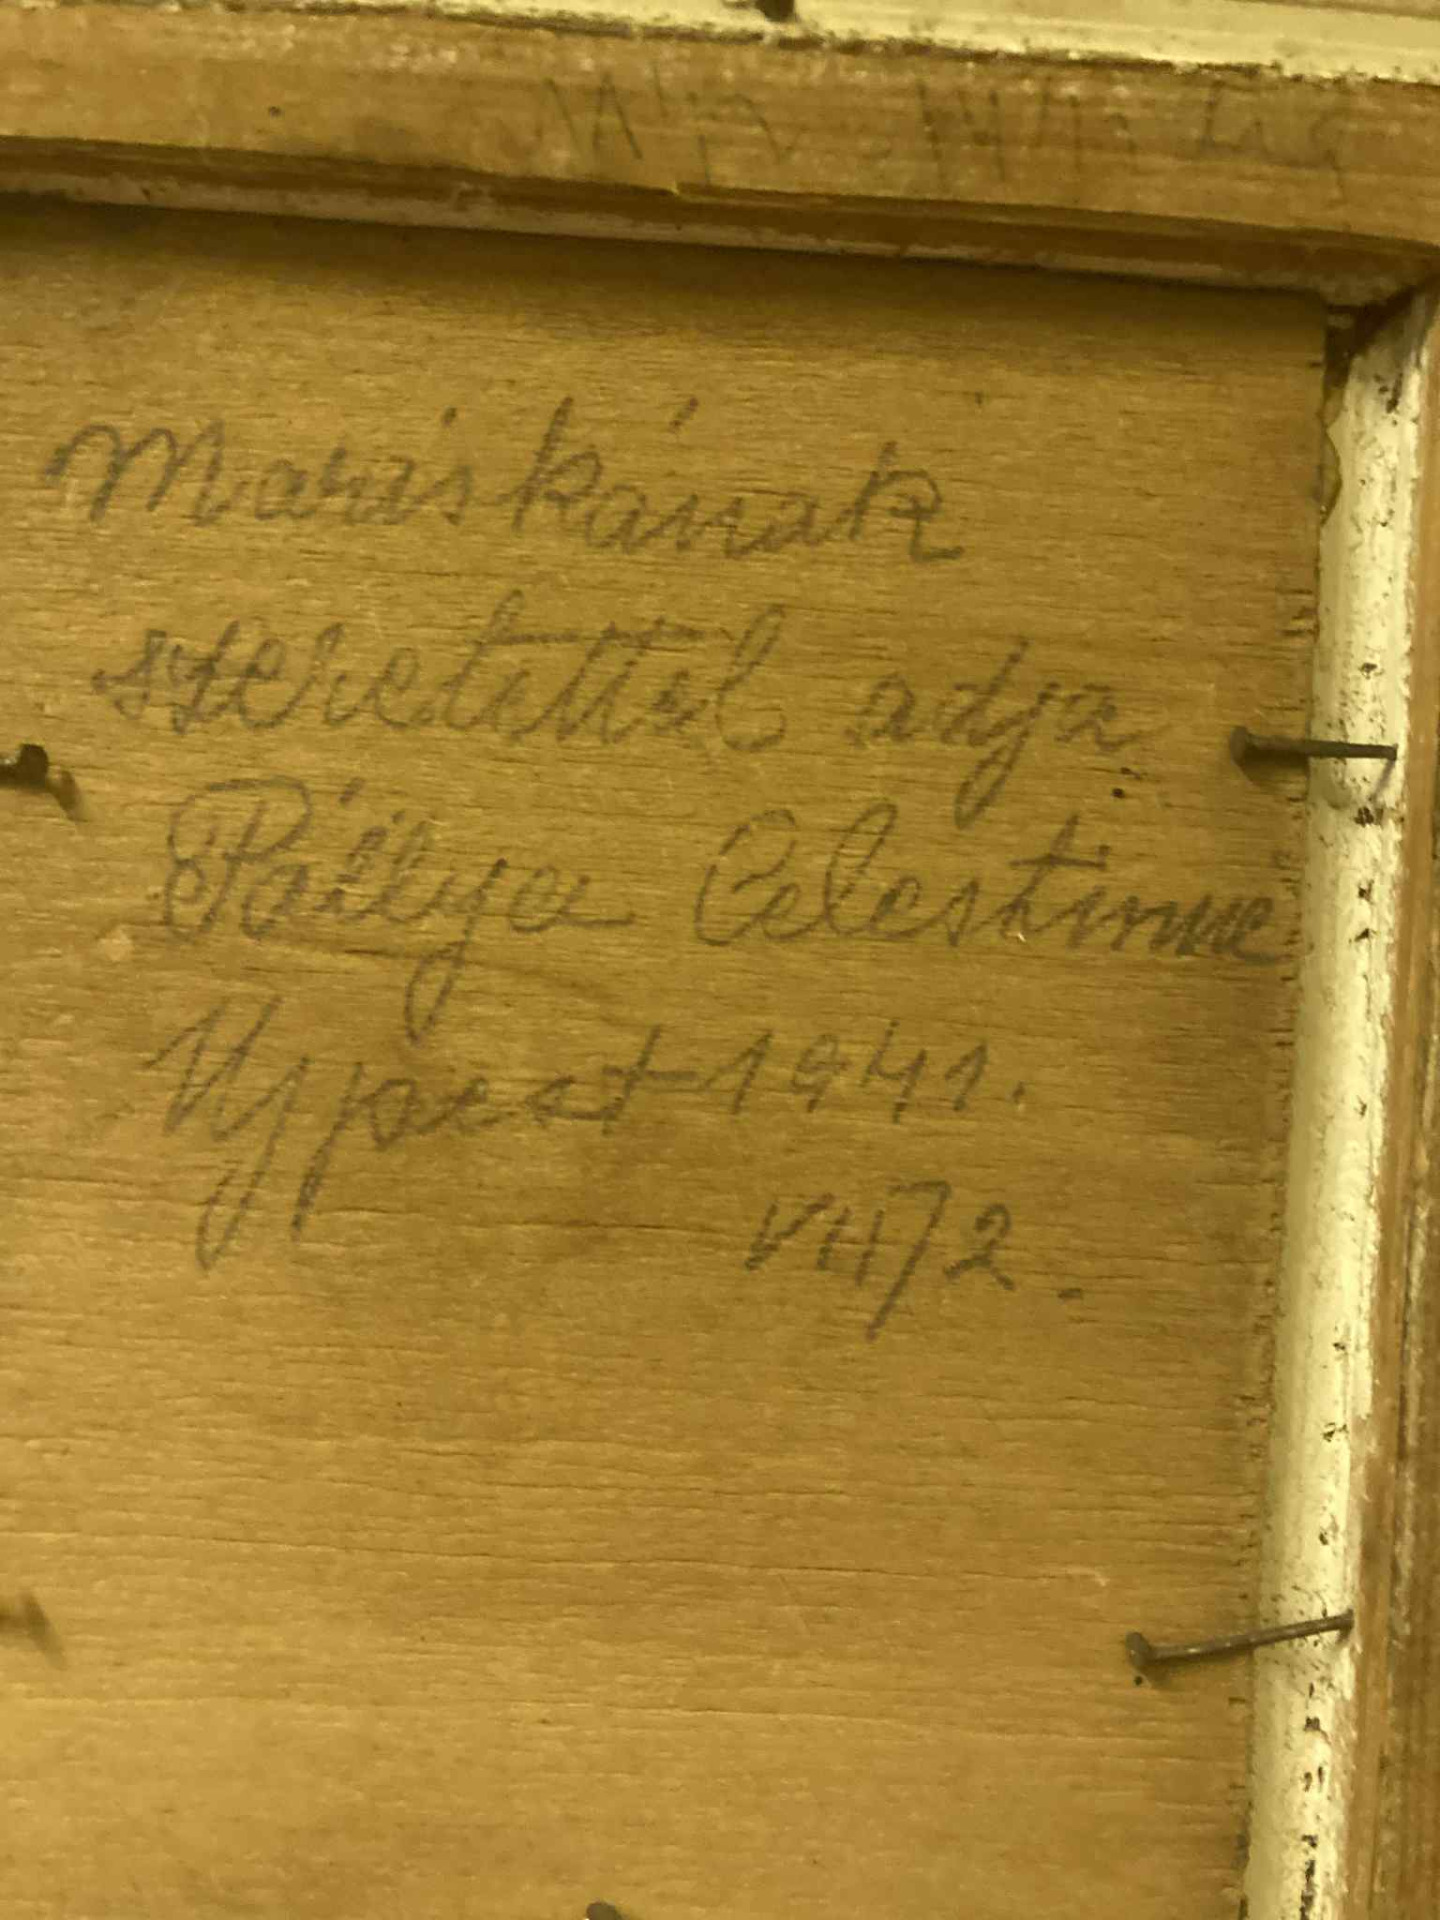 Mariskának
szeretettel adja
Pállya Celestinne
Ujpest 1941.
VII/2.